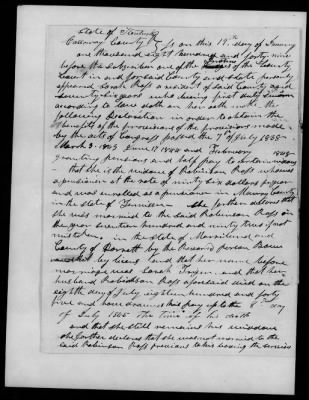 State of Kentucky
Calloway County } On this 19th day of January
one thousand eight hundred and forty nine
before the Subscriber one of the Justices of the County
Court in and for said County and State personally
appeared Sarah Ross a resident of said County aged
seventy eight years who being first duly sworn
according to law doth on her oath make the
following Declaration in order to obtain the
benefits of the provisions of the provisions made
by the act of Congress passed the 7th of July 1838
March 3. 1843 June 17 1844 and February 1848
granting pensions and half pay to certain widows
that she is the widow of Robinson Ross who was
a pensioner at the rate of ninety six dollars pr year
and was enrolled as a pensioner in Murray County
in the state of Tennessee She further declares that
she was married to the said Robinson Ross in
the year seventeen hundred and ninety three if not
mistaken in the state of Maryland and
County of Dorsett by the Reason Parson Bowie
and that by law and that her name before
marriage was Sarah and that her
husband Robinson Ross aforesaid died on the
eighth day of July eighteen hundred and forty
five and have drawn his pay up to the 8th day
of July 1845 The time of his death
and that she still remains his widow
she further declares that she was not married to the
said Robinson Ross previous to his leaving the service